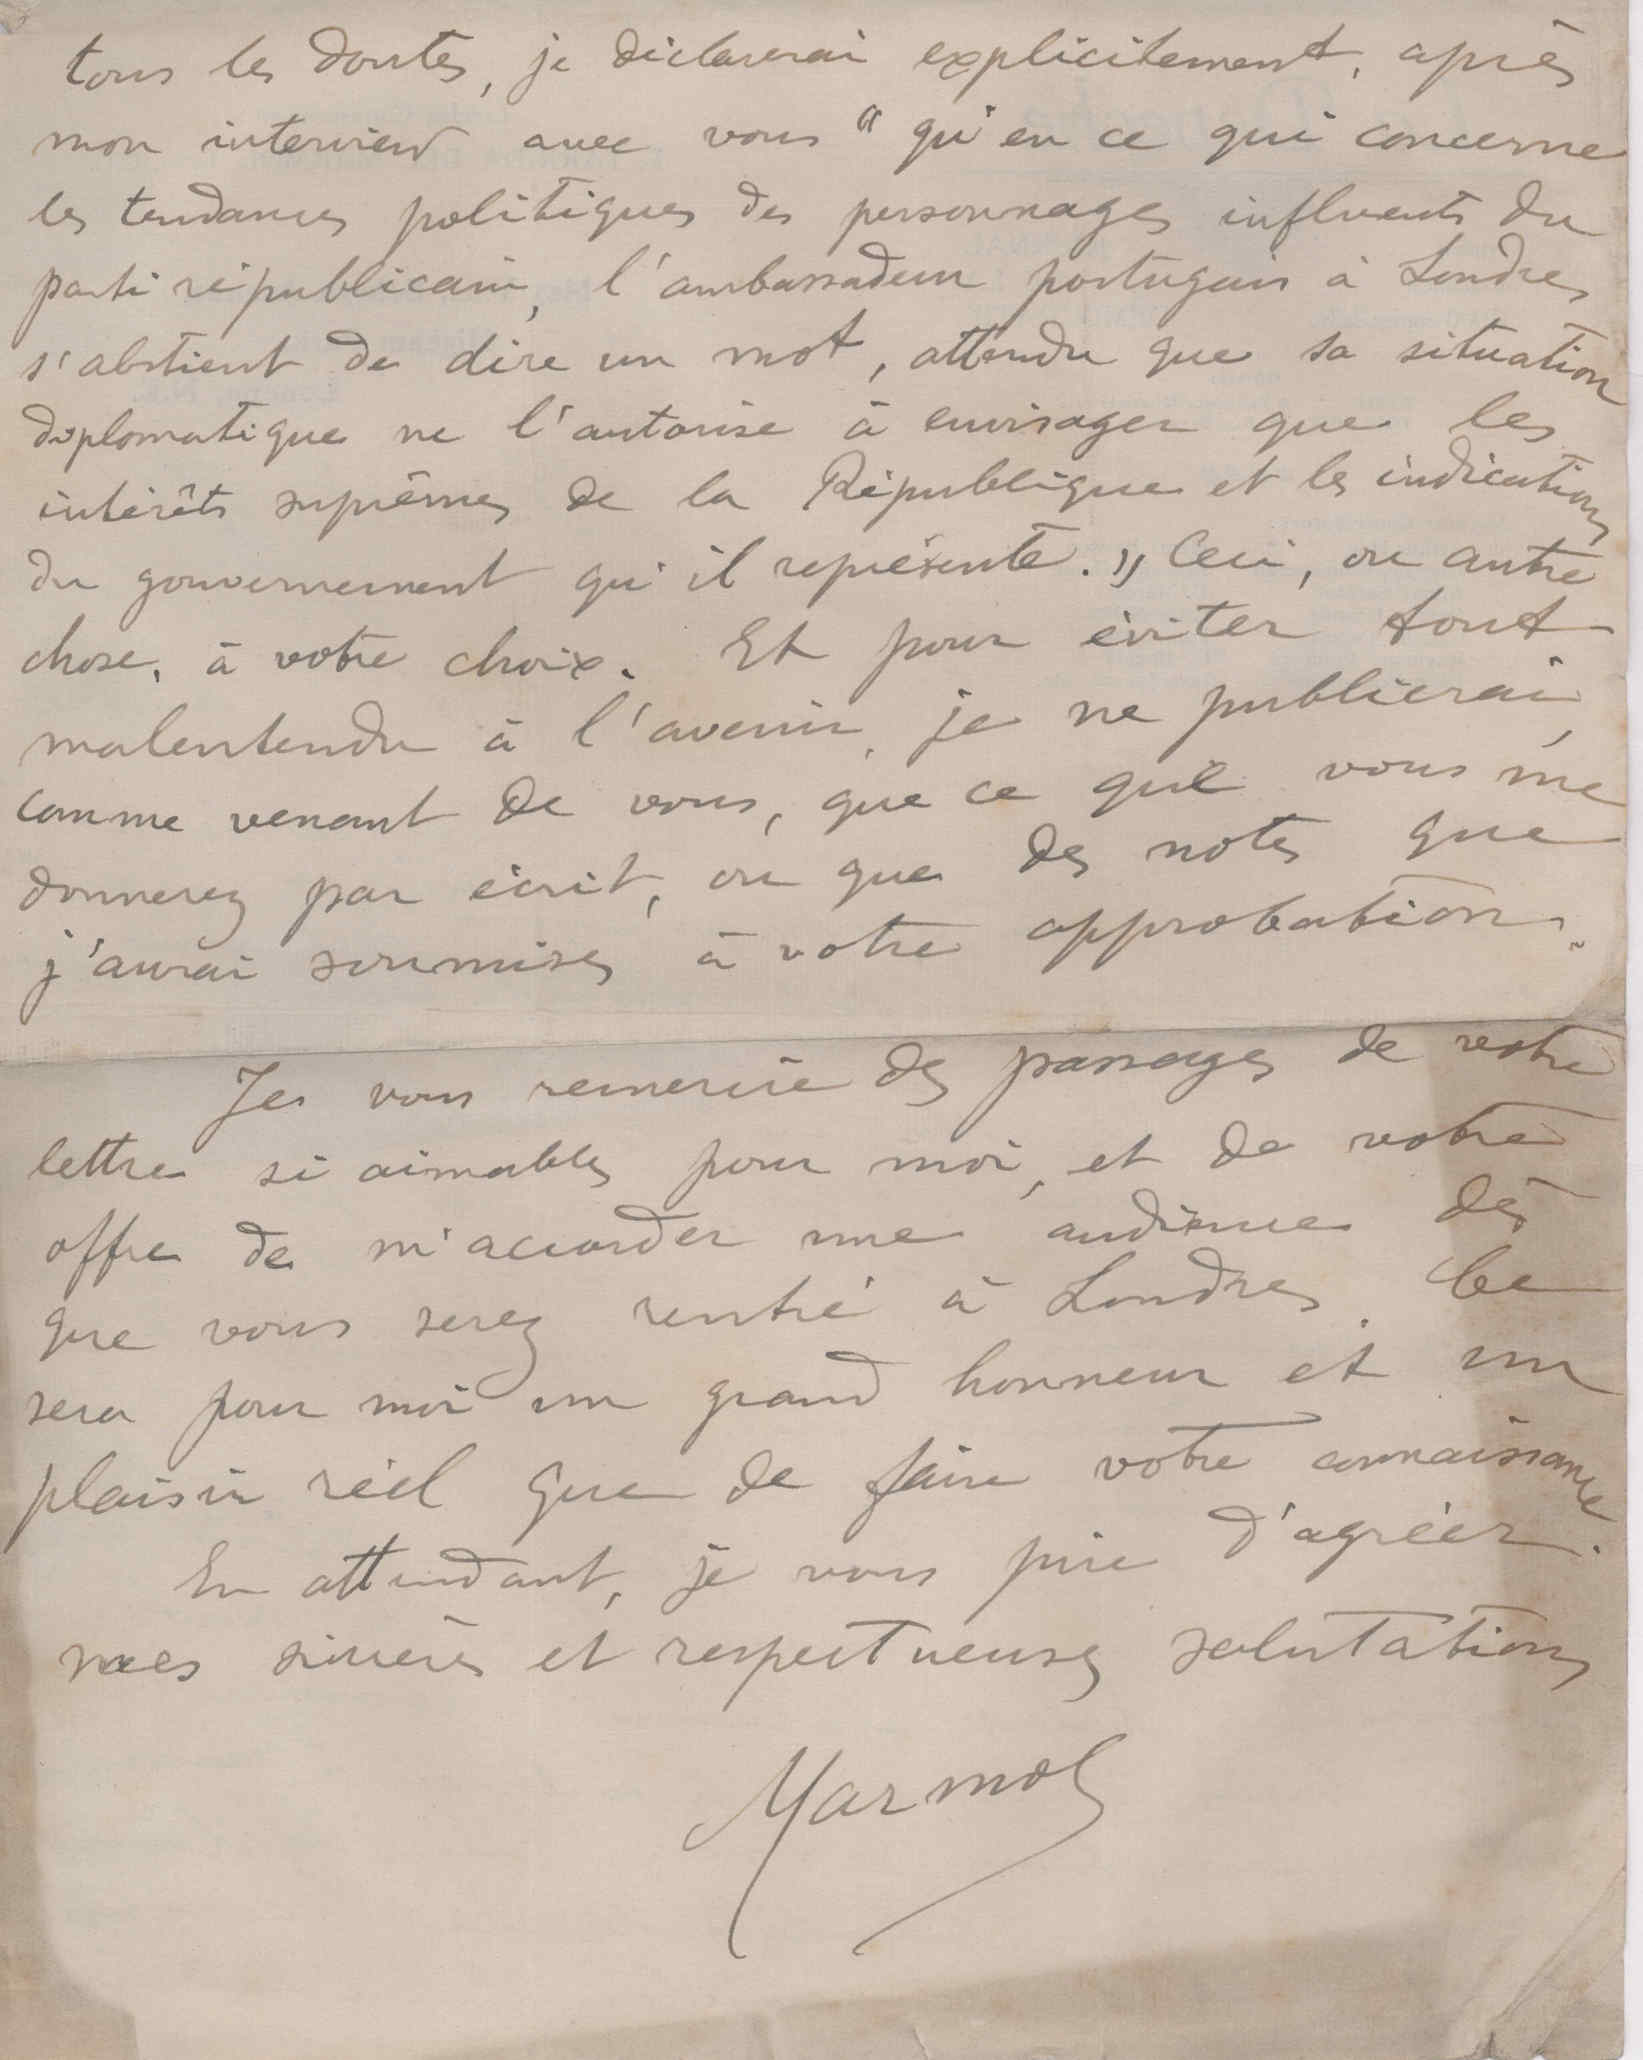 tous les doutes, je déclarerai explicitement, après
mon interview avec vous "qu'en ce qui concerne
les tendances politiques des personnages influents du
parti républicain, l'ambassadeur portugais à Londres
s'abstient de dire un mot, attendu que sa situation
diplomatique ne l'autorise à envisager que les
intérêts suprêmes de la République et les indications
du gouvernement qu'il représente." Ceci, ou autre
chose, à votre choix. Et pour éviter tout
malentendu à l'avenir, je ne publierai,
comme venant de vous, que ce que vous me
donnerez par écrit, ou que des notes que
j'aurai soumises à votre approbation.
Je vous remercie des passages de votre
lettre si aimables pour moi, et de votre
offre de m'accorder une audience dès
que vous serez rentré à Londres. Ce
sera pour moi un grand honneur et un
plaisir réel que de faire votre connaissance.
En attendant, je vous prie d'agréer
mes sincères et respectueuses salutations
Marmol